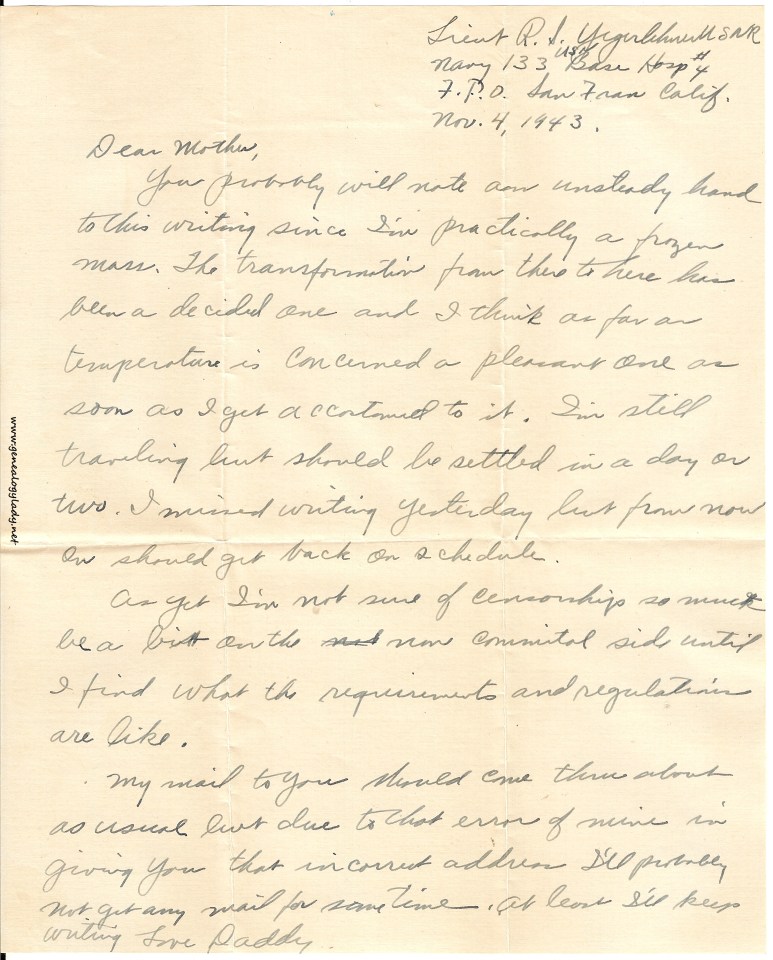 Lieut R. I. Yegerlehner USNR
Navy 133 USN Base Hosp #4
F.P.O. San Fran Calif.
Nov. 4, 1943.
Dear Mother,
You probably will note an unsteady hand
to this writing since I'm practically a frozen
mass. The transformation from there to here has
been a decided one and I think as far as
temperature is concerned a pleasant one as
soon as I get accostomed to it. I'm still
traveling but should be settled in a day or
two. I missed writing yesterday but from now
on should get back on schedule.
As yet I'm not sure of censorship so must
be a bit on the non commital side until
I find what the requirements and regulations
are like.
My mail to you should come thru about
as usual but due to that error of mine in
giving you that incorrect address I'll probably
not get any mail for some time. At least I'll keep
writing Love Daddy.
www.genealogylady.net